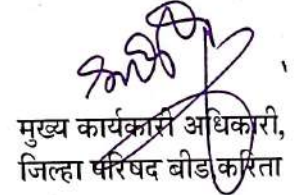 मुख्य कार्यकारी अधिकारी,
जिल्हा परिषद बीड करिता